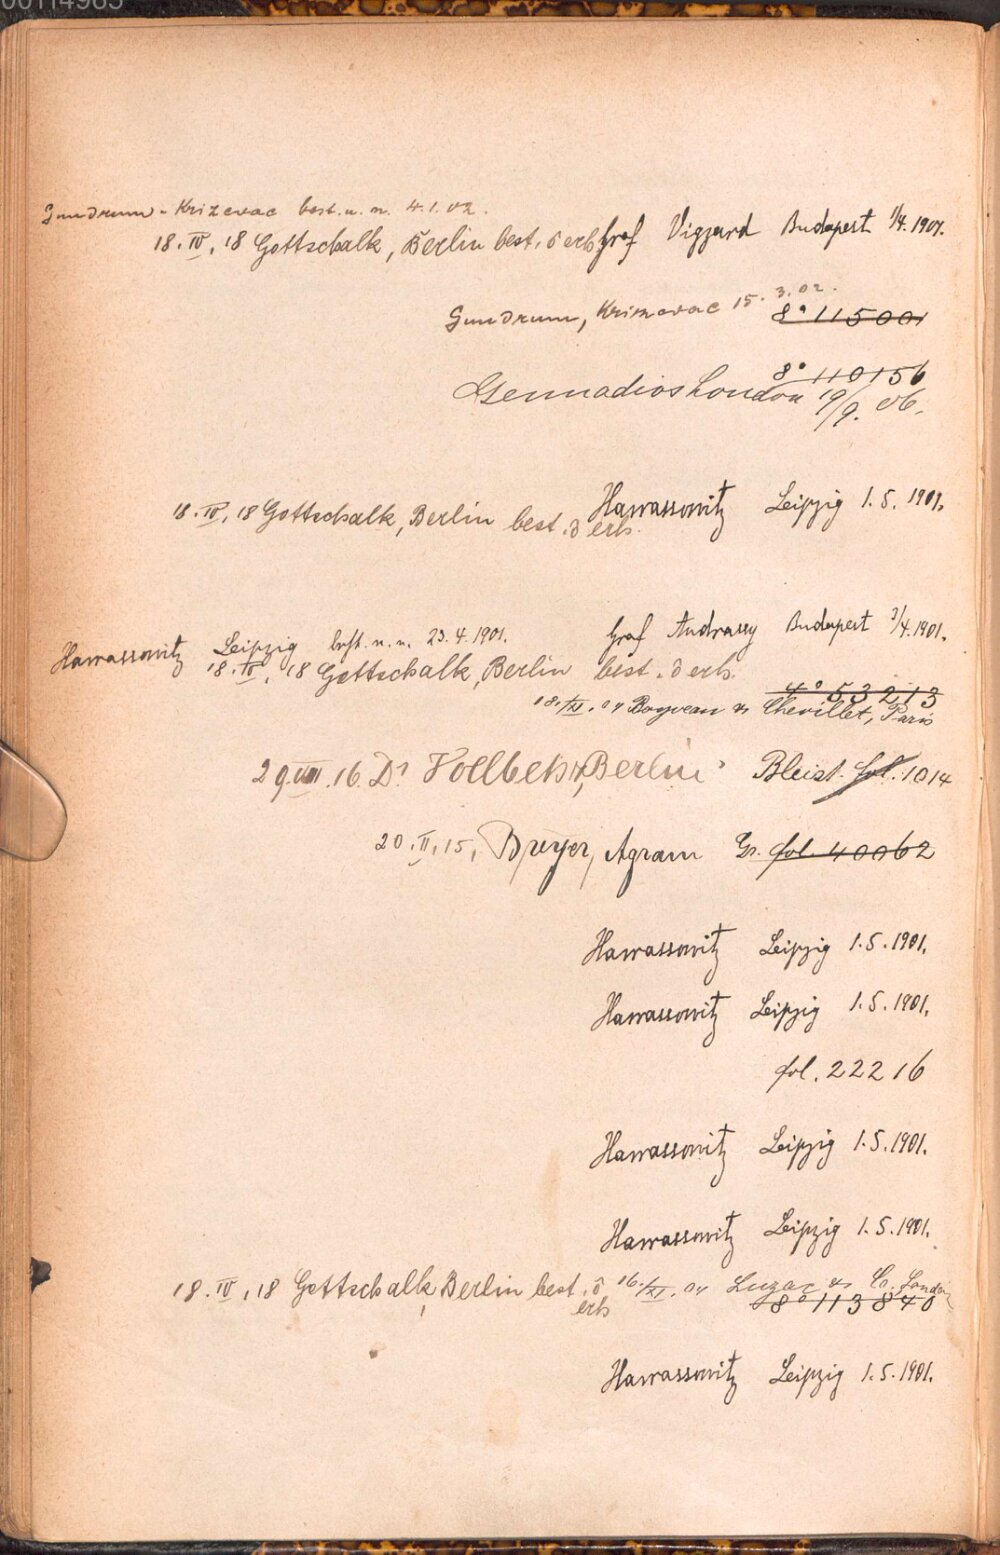 00114985
Gundrum - Krizevac best. u. n. 4.1.02.
18. IV, 18 Gottschalk, Berlin best. ō erh. Graf Vigyard Budapest 1/4. 1901.
Gundrum, Krizevac 15. 3. 02.
8° 11500
8° 110156
Gennadios London 19/9. 06.
Harrassowitz Leipzig 1. 5. 1901.
18. IV, 18 Gottschalk, Berlin best. ō erh.
Graf Andrassy Budapest 1/4. 1901.
Harrassowitz Leipzig best. u. n. 23. 4. 1901.
18. IV, 18 Gottschalk, Berlin best. ō erh.
4° 53213
18./XI. 04 Boyveau & Chevillet, Paris
29. VIII. 16. Dr Berlin Bleist. fol. 1014
20. II, 15, Breyer, Agram Gr. fol. 40062
Harrassowitz Leipzig 1. 5. 1901.
Harrassowitz Leipzig 1. 5. 1901.
fol. 22216
Harrassowitz Leipzig 1. 5. 1901.
Harrassowitz Leipzig 1. 5. 1901.
18. IV, 18 Gottschalk, Berlin best. ō erh 16./XI. 04 Luzac & Co. London
8° 113840
Harrassowitz Leipzig 1. 5. 1901.